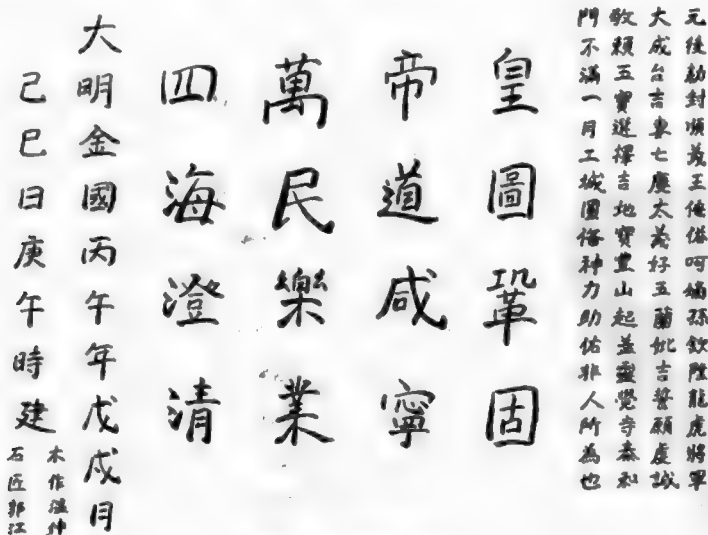 元後勅封順義王俺答呵嫡孫欽陞龍虎將軍
大成台吉妻七慶大義好五蘭妣吉誓願虔誠
敬賴五寶選擇吉地寶豊山起盖靈覺寺泰和
門不滿一月工城圓偹神力助佑非人所為也
皇圖鞏固
帝道咸寧
萬民樂業
四海澄清
大明金國丙午年戊戌月
己巳日庚午時建
木作溫伸
石匠郭江